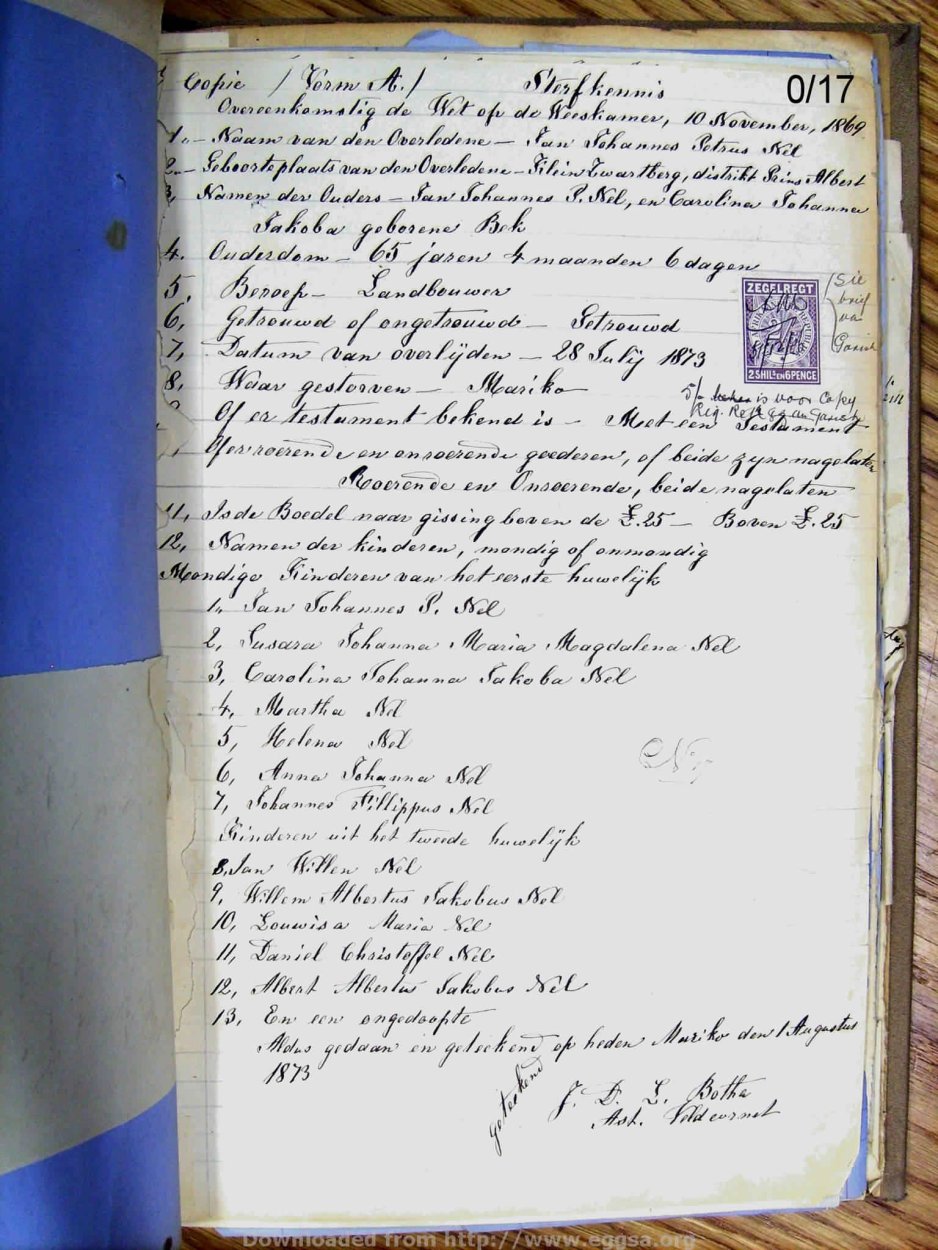 Copie / Vorm A. / Sterfkennis
0/17
Overeenkomstig de Wet op de Weeskamer, 10 November, 1869
1.– Naam van den Overledene – Jan Johannes Petrus Nel
2.– Geboorteplaats van den Overledene – Klein Zwartberg, distrikt Prins Albert
3, Namen der Ouders – Jan Johannes P. Nel, en Carolina Johanna
Jakoba geborene Bek
4. Ouderdom – 65 jaren 4 maanden 6 dagen
5, Beroep – Landbouwer
6, Getrouwd of ongetrouwd – Getrouwd
7, Datum van overlijden – 28 July 1873
8, Waar gestorven – Mariko
ZEGELREGT
2 SHIL^S EN 6 PENCE
Sie
brief
va
5/- is voor Copy
9 Of er testament bekend is – Met een Testament
Of er roerende en onroerende goederen, of beide zyn nagelaten
Roerende en Onroerende, beide nagelaten
11, Is de Boedel naar gissing boven de £.25 – Boven £.25
12, Namen der kinderen, mondig of onmondig
Mondige Kinderen van het eerste huwelijk
1„ Jan Johannes P. Nel
2, Susara Johanna Maria Magdalena Nel
3, Carolina Johanna Jakoba Nel
4, Martha Nel
5, Helena Nel
6, Anna Johanna Nel
7, Johannes Fillippus Nel
Kinderen uit het tweede huwelijk
8, Jan Willen Nel
9, Willem Albertus Jakobus Nel
10, Louwisa Maria Nel
11, Daniel Christoffel Nel
12, Albert Albertus Jakobus Nel
13, En een ongedoopte
Aldus gedaan en geteekend op heden Mariko den 1 Augustus
1873
geteekend J. D. L. Botha
Ast. Veldcornet
Downloaded from http://www.eggsa.org